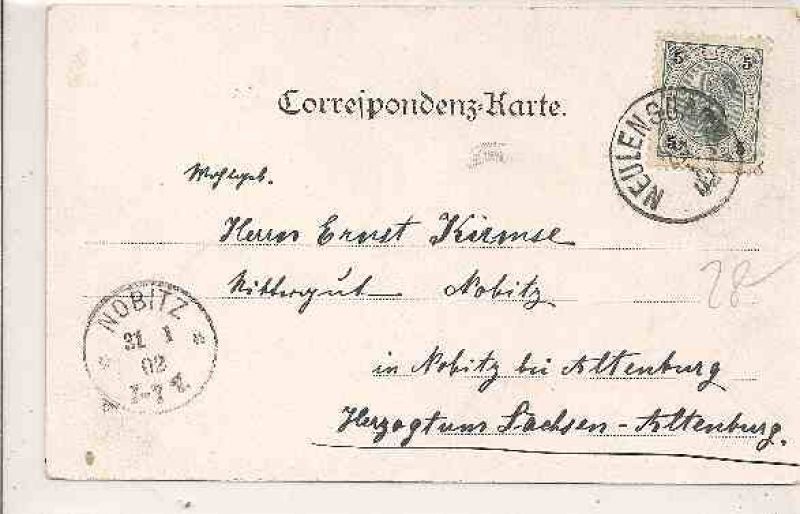 Correspondenz-Karte.
5 5
5
NEULENGBA
Wohlgeb.
Herrn Ernst Kirmse
Rittergut Nobitz
28-
NOBITZ
31 1
02
in Nobitz bei Altenburg
Herzogtum Sachsen-Altenburg.